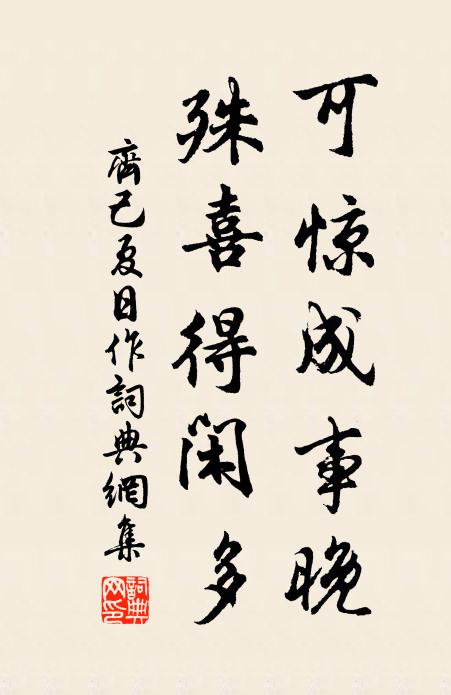 可惊成事晚
殊喜得闲多
齊己夏日作詞典網集
詞典網印